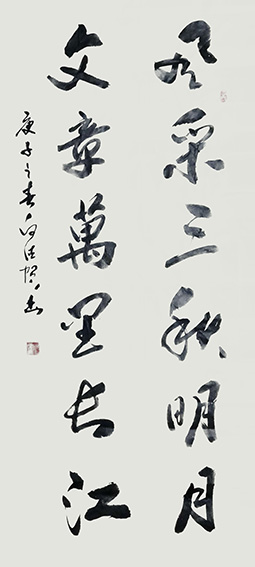 風采三秋明月
文章萬里長江
庚子之春